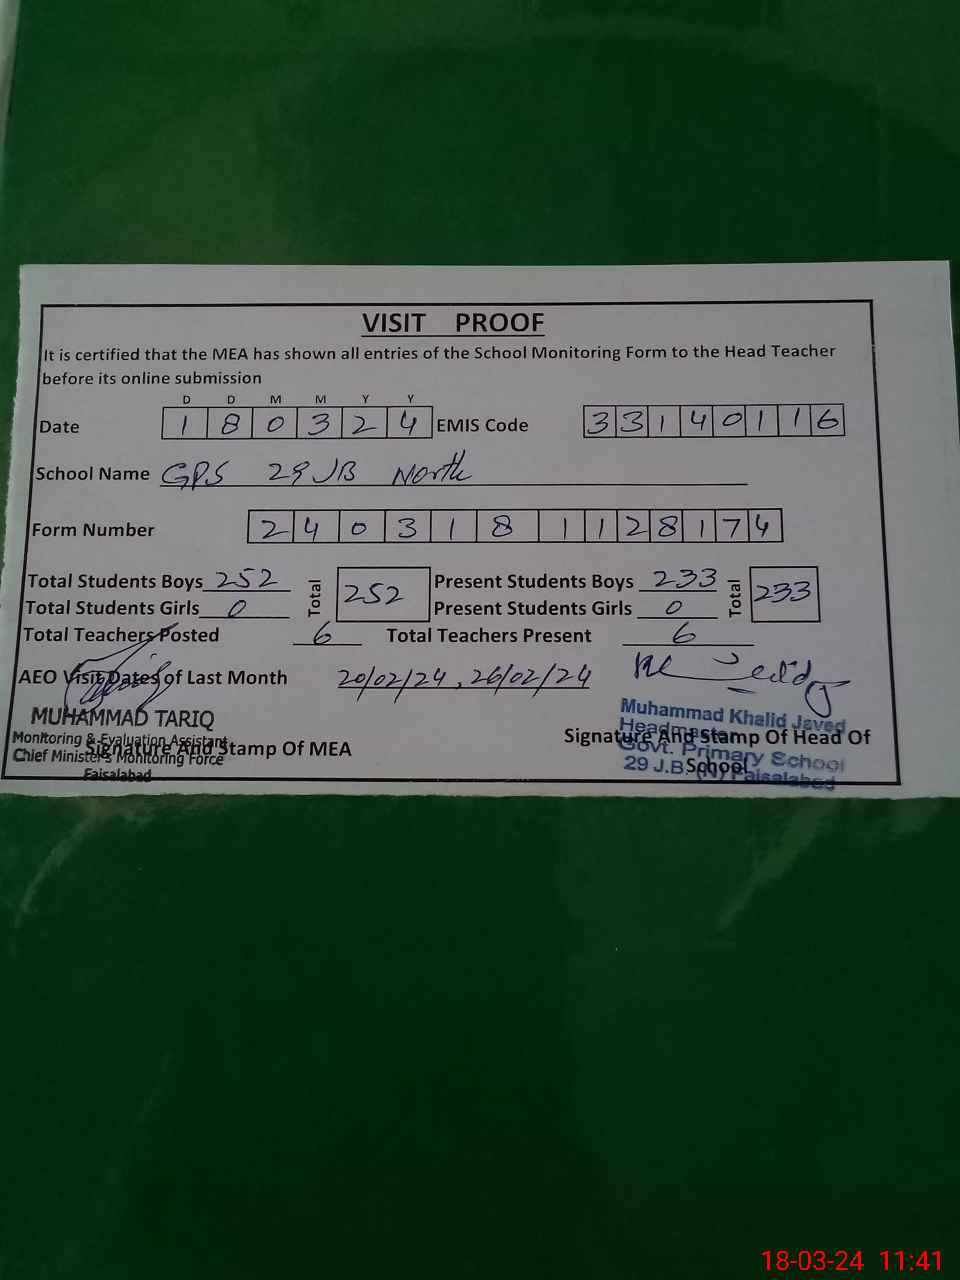 VISIT PROOF
It is certified that the MEA has shown all entries of the School Monitoring Form to the Head Teacher
before its online submission
D D M M Y Y
Date 1 8 0 3 2 4 EMIS Code 3 3 1 4 0 1 1 6
School Name GPS 29 JB North
Form Number 2 4 0 3 1 8 1 1 2 8 1 7 4
Total Students Boys 252 Total 252 Present Students Boys 233 Total 233
Total Students Girls 0 Present Students Girls 0
Total Teachers Posted 6 Total Teachers Present 6
AEO Visit Dates of Last Month 20/02/24, 26/02/24
MUHAMMAD TARIQ
Monitoring & Evaluation Assistant
Chief Minister's Monitoring Force
Faisalabad
Signature And Stamp Of MEA
Muhammad Khalid Javed
Headmaster
Govt. Primary School
29 J.B. (N) Faisalabad
Signature And Stamp Of Head Of
School
18-03-24 11:41